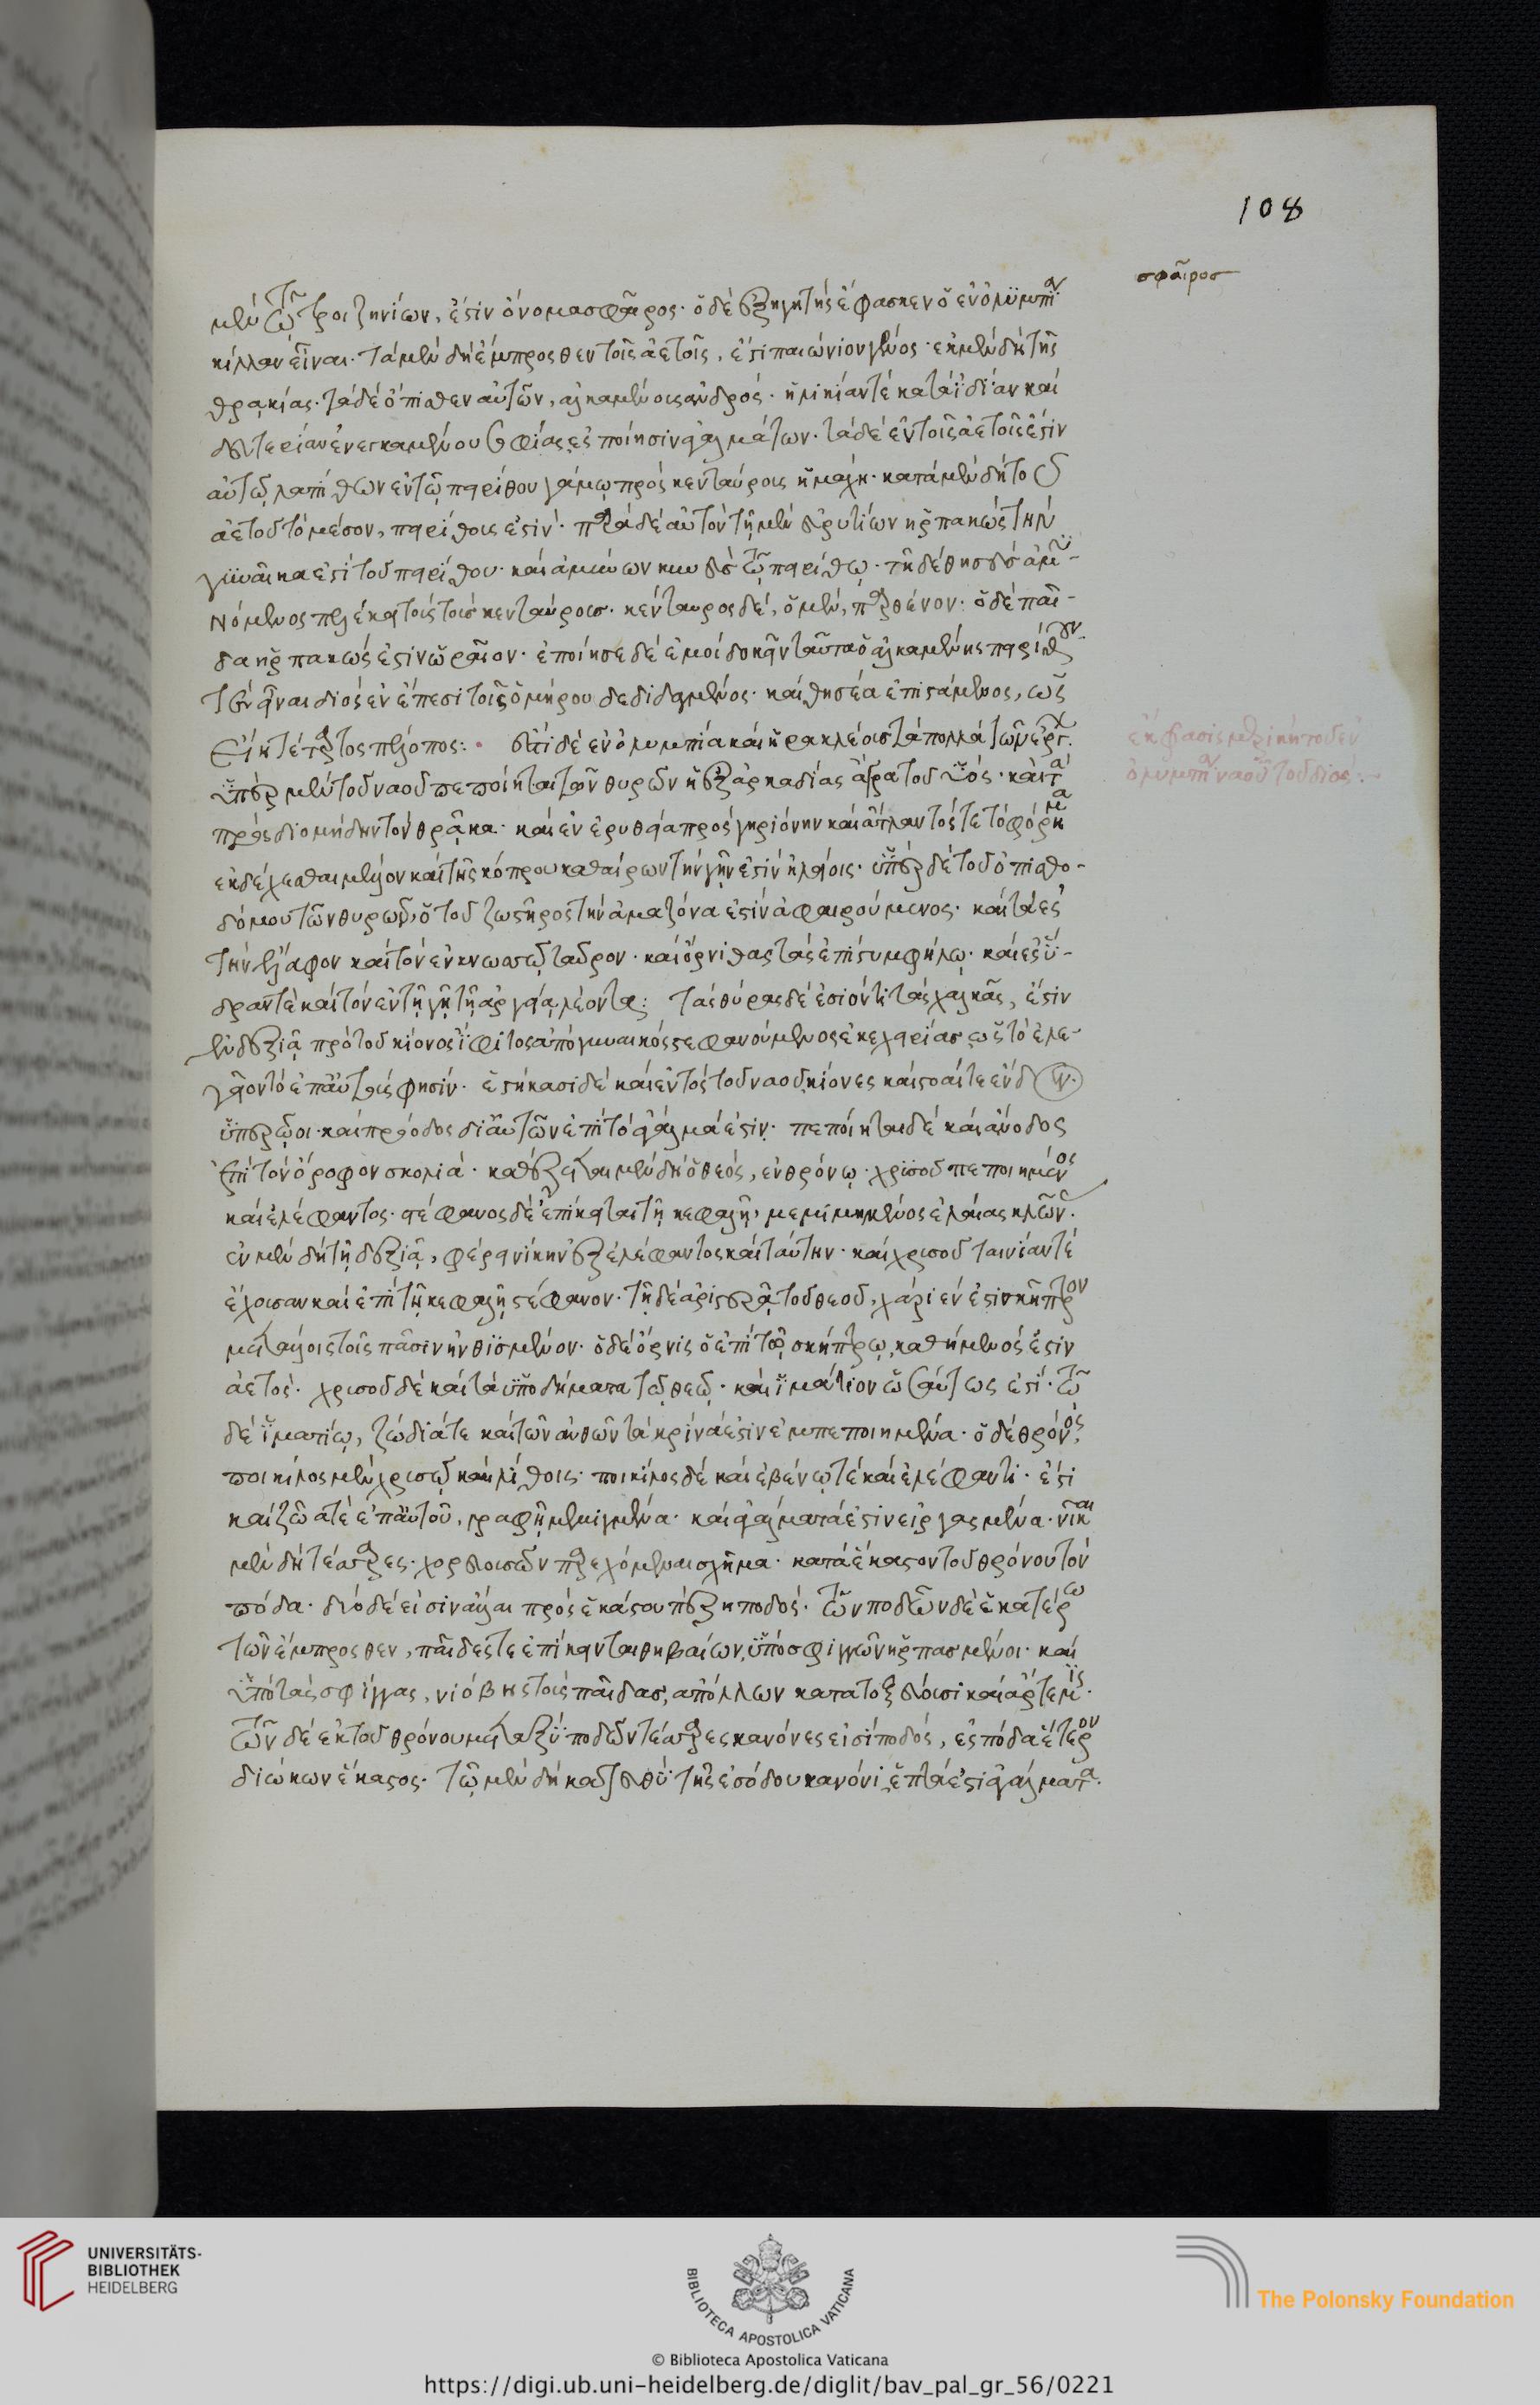 108
σφαῖρος
μὲν τῶν τροιζηνίων, ἐστὶν ὄνομα σφαῖρος· ὁ δὲ ἐξηγητὴς ἔφασκεν ὁ ἐν ὀλυμπίᾳ
κίλλαν εἶναι· τὰ μὲν δὴ ἔμπροσθεν τοῖς ἀετοῖς, ἐστὶ παιώνιον γένος· ἐκ μὲν δὴ τῆς
θρακίας· τὰ δὲ ὄπισθεν αὐτῶν, ἀλκαμένους ἀνδρός· ἡλικίαν τὲ κατὰ ἰδίαν καὶ
δευτερεῖα ἐνεγκαμένου σοφίας ἐς ποίησιν ἀγαλμάτων· τὰ δὲ ἐν τοῖς ἀετοῖς ἐστὶν
αὐτῷ λαπίθων ἐν τῷ πειρίθου γάμῳ πρὸς κενταύροις ἡ μάχη· κατὰ μὲν δὴ τοῦ
ἀετοῦ τὸ μέσον, πειρίθοις ἐστίν· παρὰ δὲ αὐτὸν τῇ μὲν εὐρυτίων ἡρπακὼς τὴν
γυναῖκα ἐστὶ τοῦ πειρίθου· καὶ ἀμύνων καινεὺς τῷ πειρίθῳ· τῇ δὲ θησεὺς ἀμυ-
νόμενος πελέκει τοὺς τοὺς κενταύρους· κένταυρος δὲ, ὁ μὲν, παρθένον· ὁ δὲ παῖ-
δα ἡρπακώς ἐστιν ὡραῖον· ἐποίησε δὲ ἐμοὶ δοκεῖν ταῦτα ὁ ἀλκαμένης πειρίθουν
τε εἶναι διὸς ἐν ἔπεσι τοῖς ὁμήρου δεδιδαγμένος· καὶ θησέα ἐπιστάμενος, ὡς
εἴη τέταρτος πέλοπος: ἔστι δὲ ἐν ὀλυμπίᾳ καὶ ἡρακλέους τὰ πολλὰ τῶν ἔργων.
ὑπὲρ μὲν τοῦ ναοῦ πεποίηται τῶν θυρῶν ἡ ἐξ ἀρκαδίας ἄγρα τοῦ ὑός· καὶ τὰ
πρὸς διομήδην τὸν θρᾷκα· καὶ ἐν ἐρυθείᾳ πρὸς γηριόνην καὶ ἄτλαντός τε τὸ φόρημα
ἐκδέχεσθαι μέλλον καὶ τῆς κόπρου καθαίρων τὴν γῆν ἐστὶν ἠλείοις· ὑπὲρ δὲ τοῦ ὀπισθο-
δόμου τῶν θυρῶν, ὁ τοῦ ζωστῆρος τὴν ἀμαζόνα ἐστὶν ἀφαιρούμενος· καὶ τὰ ἐς
τὴν ἔλαφον καὶ τὸν ἐν κνωσσῷ ταῦρον· καὶ ὄρνιθας τὰς ἐπὶ στυμφήλῳ· καὶ ἐς ὕ-
δραν τὲ καὶ τὸν ἐν τῇ γῇ τῇ ἀργείᾳ λέοντα: τὰς θύρας δὲ ἐσιόντι τὰς χαλκᾶς, ἔστιν
ἐν δεξιᾷ πρὸ τοῦ κίονος ἴφιτος ἀπὸ γυναικὸς στεφανούμενος ἐκεχειρίας ὡς τὸ ἐλε-
γεῖον τὸ ἐπ' αὐταῖς φησίν· ἑστήκασι δὲ καὶ ἐντὸς τοῦ ναοῦ κίονες καὶ στοαί τε ἔνδον
ὑπερῷοι· καὶ πρόοδος δι' αὐτῶν ἐπὶ τὸ ἄγαλμά ἐστιν· πεποίηται δὲ καὶ ἄνοδος
ἐπὶ τὸν ὄροφον σκολιά· καθέζεται μὲν δὴ ὁ θεός, ἐν θρόνῳ· χρυσοῦ πεποιημένος
καὶ ἐλέφαντος· στέφανος δὲ ἐπίκειται τῇ κεφαλῇ, μεμιμημένος ἐλαίας κλῶνας.
ἐν μὲν δὴ τῇ δεξιᾷ, φέρει νίκην ἐξ ἐλέφαντος καὶ ταύτην· καὶ χρυσοῦ ταινίαν τὲ
ἔχουσαν καὶ ἐπὶ τῇ κεφαλῇ στέφανον· τῇ δὲ ἀριστερᾷ τοῦ θεοῦ, χάριεν ἐστὶ σκῆπτρον
μετάλλοις τοῖς πᾶσιν ἠνθισμένον· ὁ δὲ ὄρνις ὁ ἐπὶ τῷ σκήπτρῳ, καθήμενός ἐστιν
ἀετός· χρυσοῦ δὲ καὶ τὰ ὑποδήματα τῷ θεῷ· καὶ ἱμάτιον ὡσαύτως ἐστί· τῷ
δὲ ἱματίῳ, ζῴδιά τε καὶ τῶν ἀνθῶν τὰ κρίνα ἐστὶν ἐμπεποιημένα· ὁ δὲ θρόνος,
ποικίλος μὲν χρυσῷ καὶ λίθοις· ποικίλος δὲ καὶ ἐβένῳ τὲ καὶ ἐλέφαντι· ἐστὶ
καὶ ζῷά τε ἐπ' αὐτοῦ, γραφῇ μεμιγμένα· καὶ ἀγάλματά ἐστιν εἰργασμένα· νῖκαι
μὲν δὴ τέσσαρες· χορευουσῶν παρεχόμεναι σχῆμα· κατὰ ἕκαστον τοῦ θρόνου τὸν
πόδα· δύο δὲ εἰσὶν ἄλλαι πρὸς ἑκάστου πέζῃ ποδός· τῶν ποδῶν δὲ ἑκατέρω
τῶν ἔμπροσθεν, παῖδές τε ἐπίκεινται θηβαίων, ὑπὸ σφιγγῶν ἡρπασμένοι· καὶ
ὑπὸ τὰς σφίγγας, νιόβης τοὺς παῖδας, ἀπόλλων κατατοξεύουσι καὶ ἄρτεμις.
τῶν δὲ ἐκ τοῦ θρόνου μεταξὺ ποδῶν τέσσαρες κανόνες εἰσὶ ποδός, ἐς πόδα ἕτερον
διώκων ἕκαστος· τῷ μὲν δὴ κατ' εὐθὺ τῆς ἐσόδου κανόνι, ἑπτά ἐστι ἀγάλματα.
ἔκφρασις μερικὴ τοῦ ἐν
ὀλυμπίᾳ ναοῦ τοῦ διός:
UNIVERSITÄTS-
BIBLIOTHEK
HEIDELBERG
BIBLIOTECA APOSTOLICA VATICANA
The Polonsky Foundation
© Biblioteca Apostolica Vaticana
https://digi.ub.uni-heidelberg.de/diglit/bav_pal_gr_56/0221